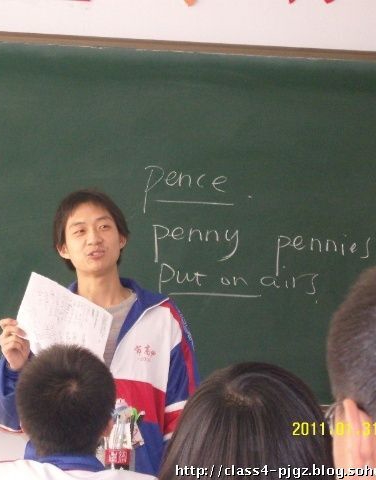 pence.
penny pennies
put on airs.
2011.01.31
http://class4-pjgz.blog.soh